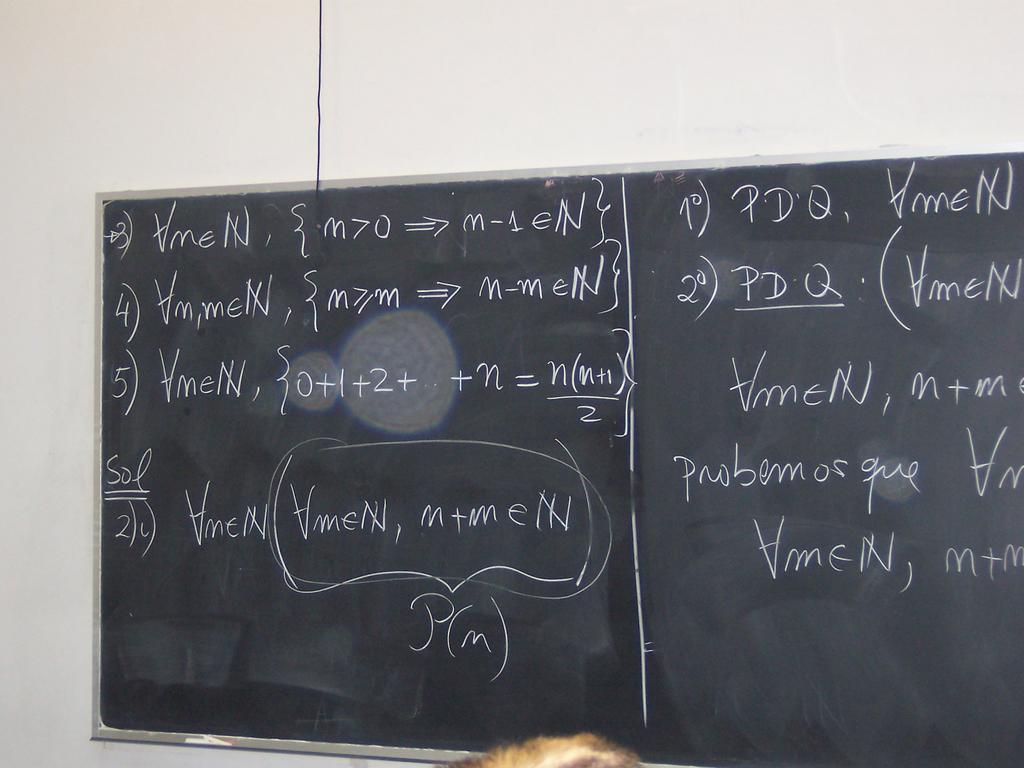 3) ∀n∈ℕ, {n>0 ⟹ n-1∈ℕ}
4) ∀n,m∈ℕ, {n≥m ⟹ n-m∈ℕ}
5) ∀n∈ℕ, {0+1+2+...+n = n(n+1)/2}
Sol
2)i) ∀n∈ℕ (∀m∈ℕ, n+m∈ℕ)
P(n)
1º) P.D.Q. ∀m∈ℕ
2º) P.D.Q : (∀m∈ℕ
∀m∈ℕ, n+m∈
probemos que ∀m
∀m∈ℕ, n+m